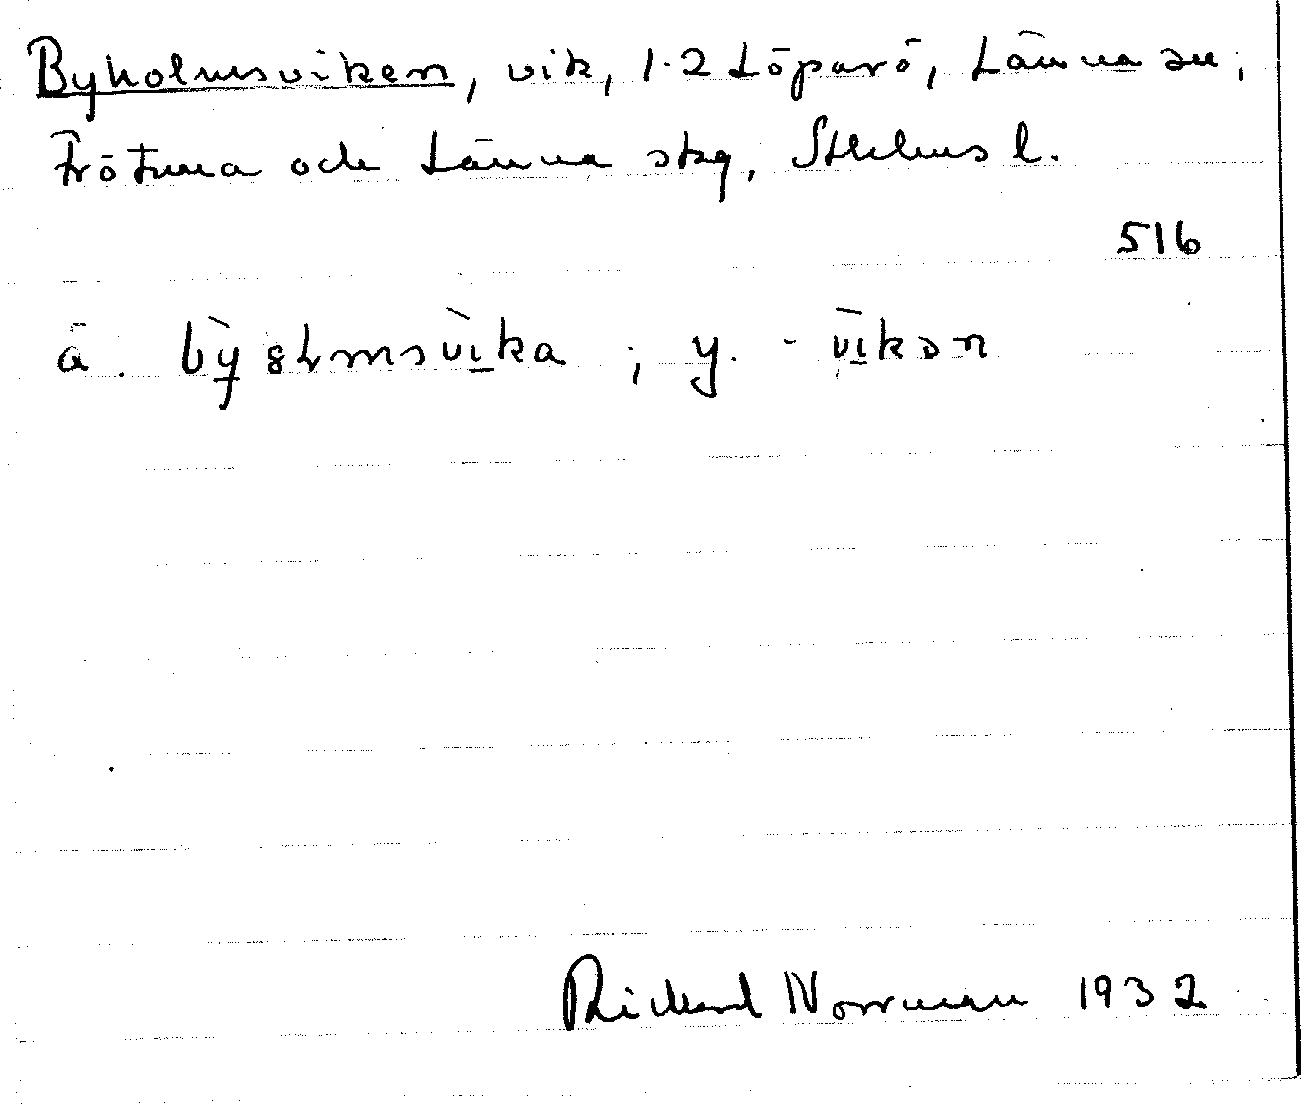 Byholmsviken, vik, 1-2 Löparö, Länna sn,
Frötuna och Länna skg, Sthlms l.
516
ä. ; y. -vikən
Rickard Norrman 1932